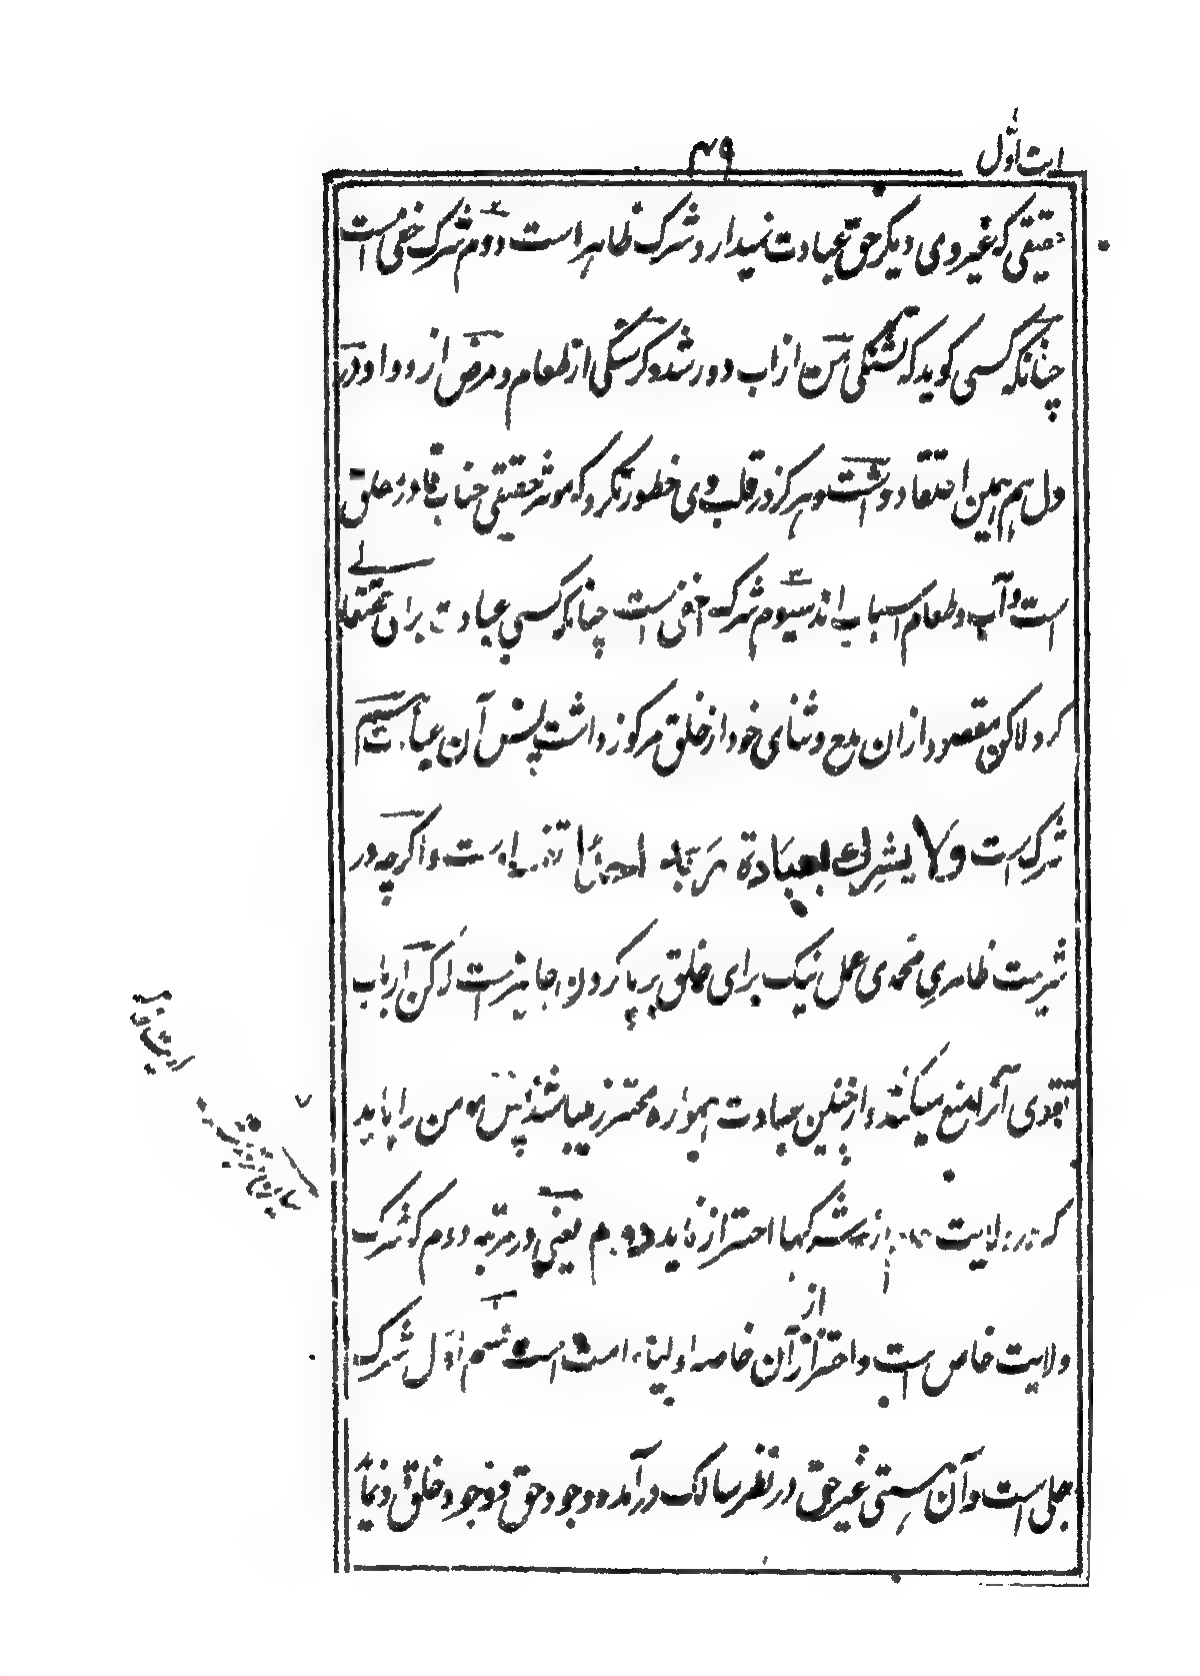 ۴۹
حقیقی که غیر وی دیگر حق عبادت نمیدارد شرک ظاهر است دوم شرک خفی است
چنانکه کسی کوید که تشنکی من از اب دور شد و کرسنکی از طعام و مرض از دوا و در
دل هم همین اعتقاد داشت و هرکز در قلب وی خطور نکرد که موثر حقیقی جناب قادر مطلق
است و آب و طعام اسباب اند سیوم شرک اخفی است چنانکه کسی عبادت برای حقتعالے
کرد لاکن مقصود ازان مدح و ثنای خود از خلق مرکوز داشت پس آن عبادت
شرک است ولا يشرك بعبادة ربه احدا است و اکرچه در
شریعت ظاهری محمدی عمل نیک برای خلق برپا کردن جایز است لکن ارباب
تقوی آنرا منع میکنند و از چنین عبادت همواره محترز میباشند پس مومن را باید
که در ولایت ازین شرکها احتراز نماید دوم یعنی در مرتبه دوم که شرک
ولایت خاص است و احتراز از آن خاصه اولیاء امت است قسم اول شرک
جلی است و آن هستی غیر حق در نظر سالک درآمده وجود حق و وجود خلق